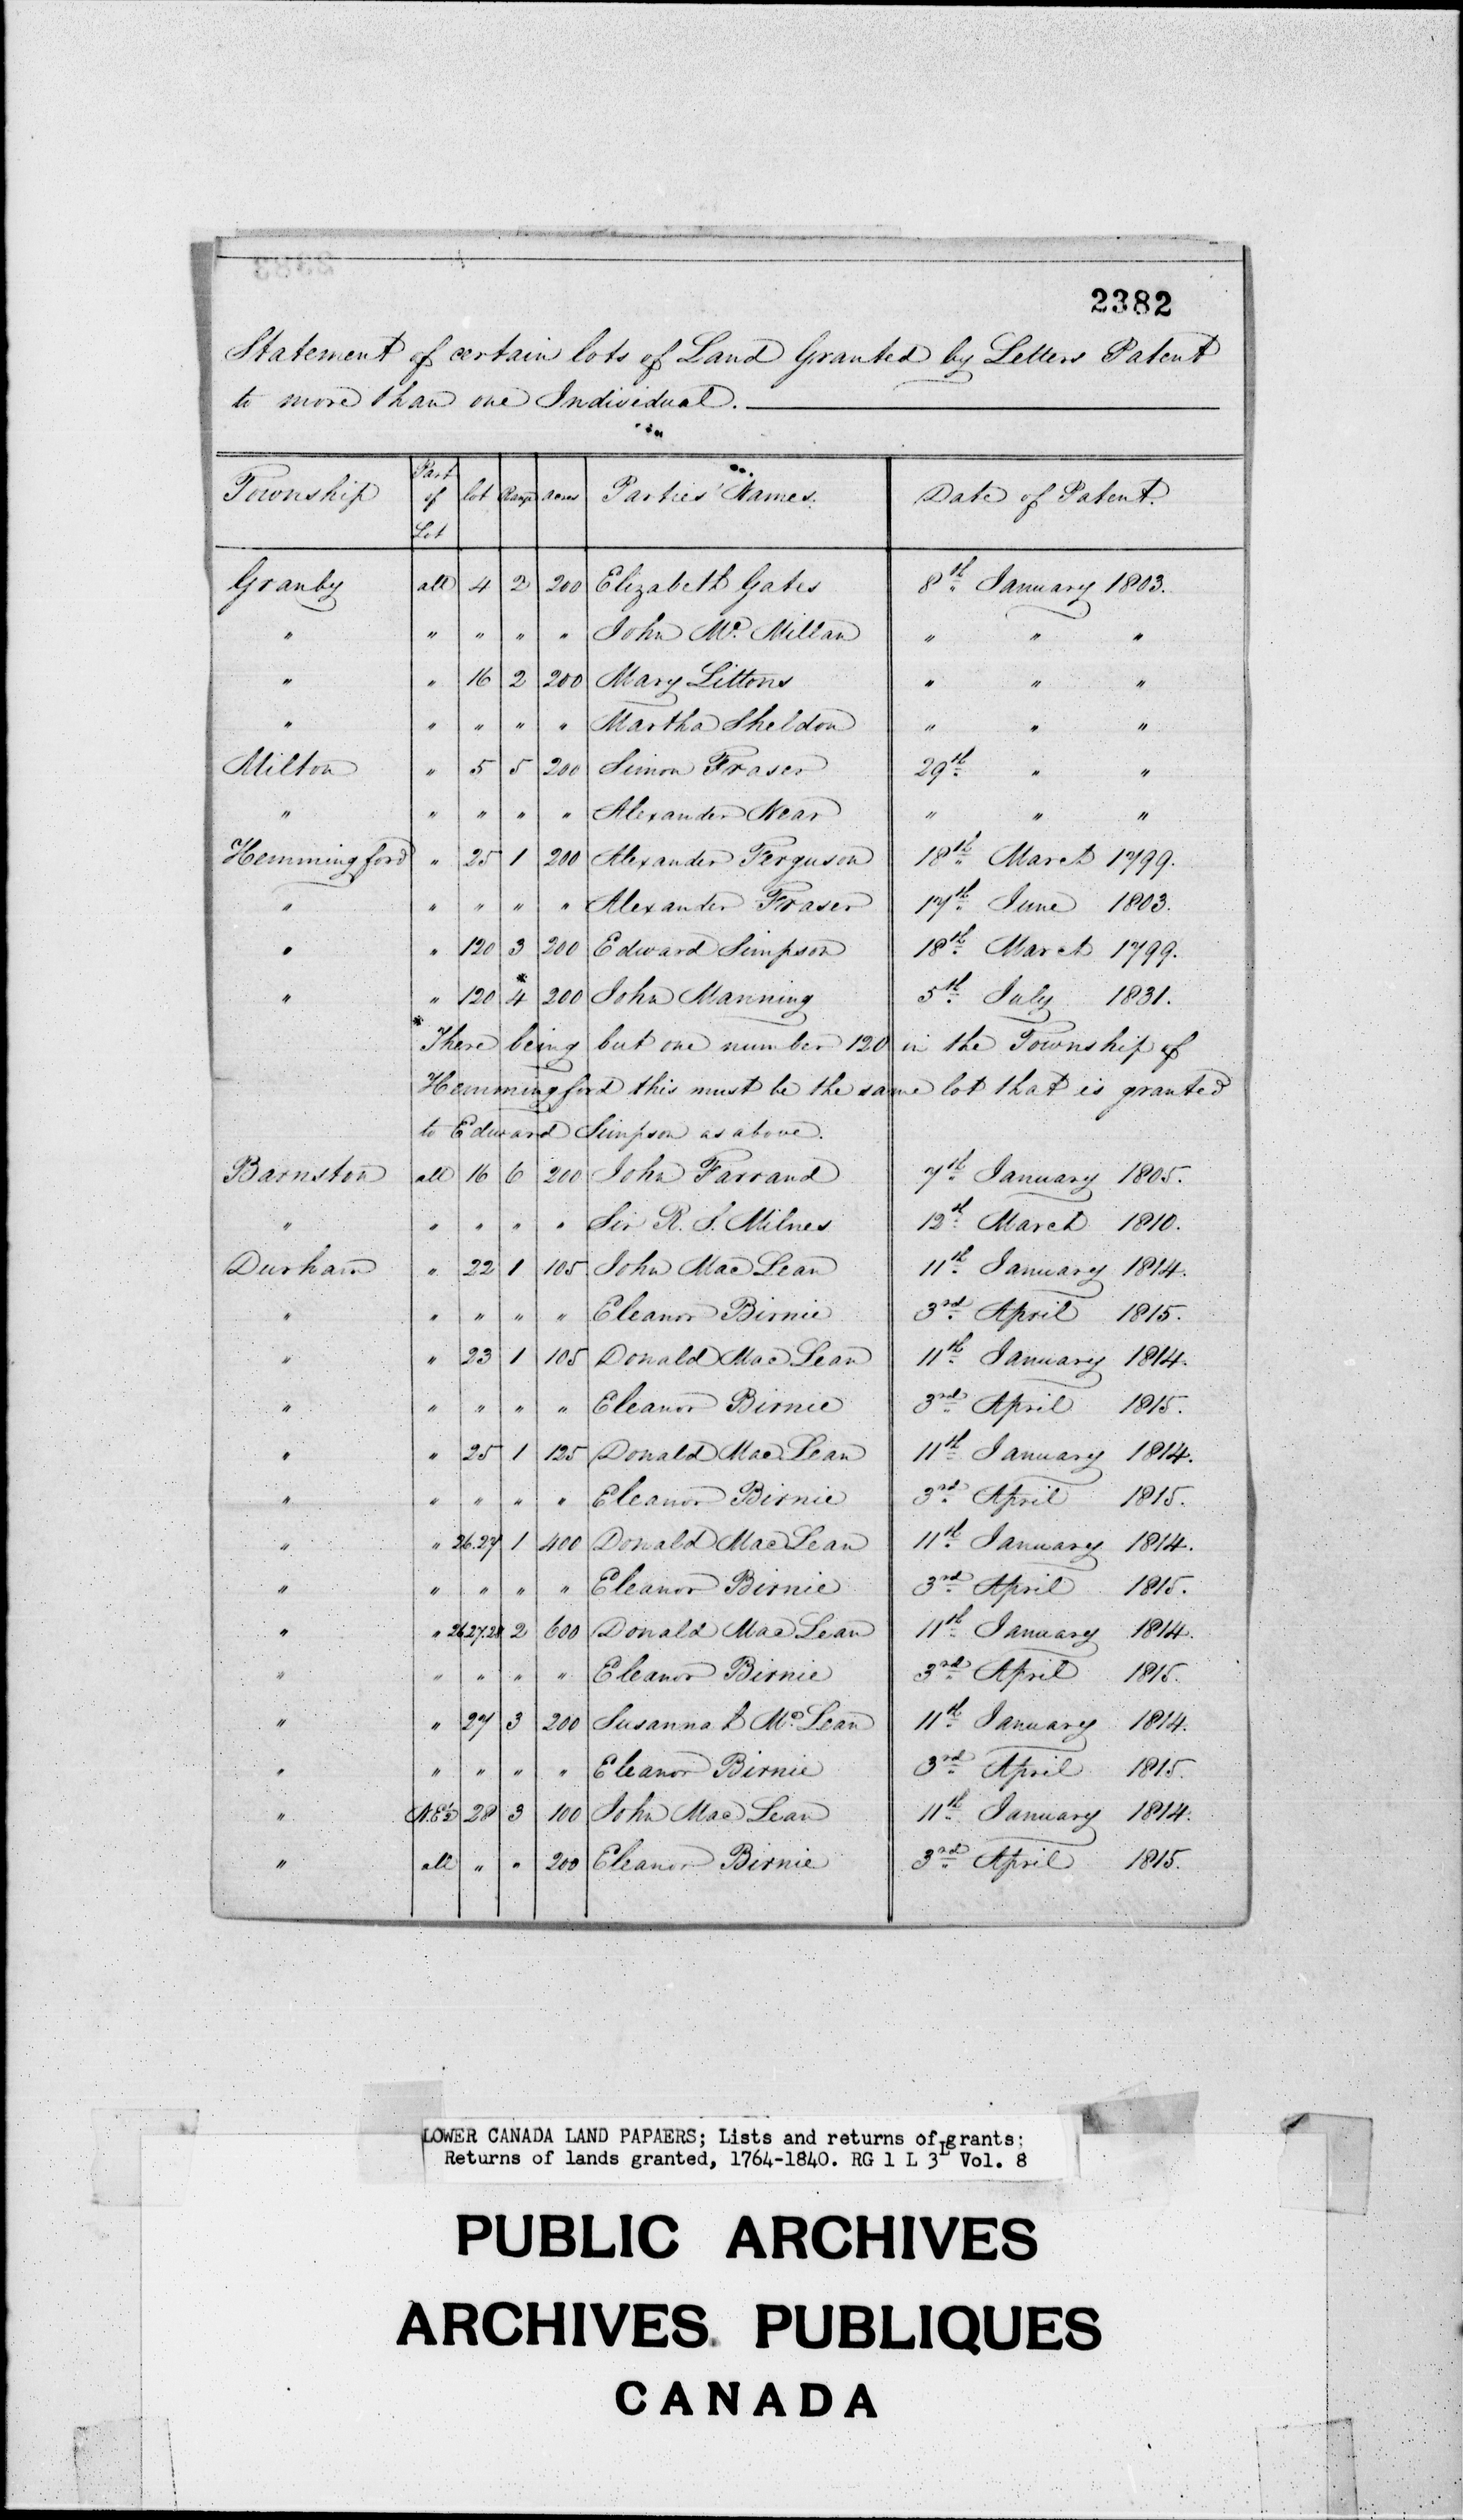 2382
Statement of certain lots of Land Granted by Letters Patent
to more than one Individual.
Township Part of Lot lot Range acres Parties' Names. Date of Patent.
Granby all 4 2 200 Elizabeth Gates 8th January 1803.
" " " " " John Mc Millan " " "
" " 16 2 200 Mary Littons " " "
" " " " " Martha Sheldon " " "
Milton " 5 5 200 Simon Fraser 29th " "
" " " " " Alexander " " "
Hemmingford " 25 1 200 Alexander Ferguson 18th March 1799.
" " " " " Alexander Fraser 17th June 1803.
" " 120 3 200 Edward Simpson 18th March 1799.
" " 120 4* 200 John Manning 5th July 1831.
* There being but one number 120 in the Township of
Hemmingford this must be the same lot that is granted
to Edward Simpson as above.
Barnston all 16 6 200 John Farrand 7th January 1805.
" " " " " Sir R. S. Milnes 12th March 1810.
Durham " 22 1 105 John Mac Lean 11th January 1814.
" " " " " Eleanor Birnie 3rd April 1815.
" " 23 1 105 Donald Mac Lean 11th January 1814.
" " " " " Eleanor Birnie 3rd April 1815.
" " 25 1 125 Donald Mac Lean 11th January 1814.
" " " " " Eleanor Birnie 3rd April 1815.
" " 26.27 1 400 Donald Mac Lean 11th January 1814.
" " " " " Eleanor Birnie 3rd April 1815.
" " 26.27.28 2 600 Donald Mac Lean 11th January 1814.
" " " " " Eleanor Birnie 3rd April 1815.
" " 27 3 200 Susannah Mc Lean 11th January 1814.
" " " " " Eleanor Birnie 3rd April 1815.
" N.E½ 28 3 100 John Mac Lean 11th January 1814.
" all " " 200 Eleanor Birnie 3rd April 1815.
LOWER CANADA LAND PAPAERS; Lists and returns of grants:
Returns of lands granted, 1764-1840. RG 1 L 3L Vol. 8
PUBLIC ARCHIVES
ARCHIVES PUBLIQUES
CANADA